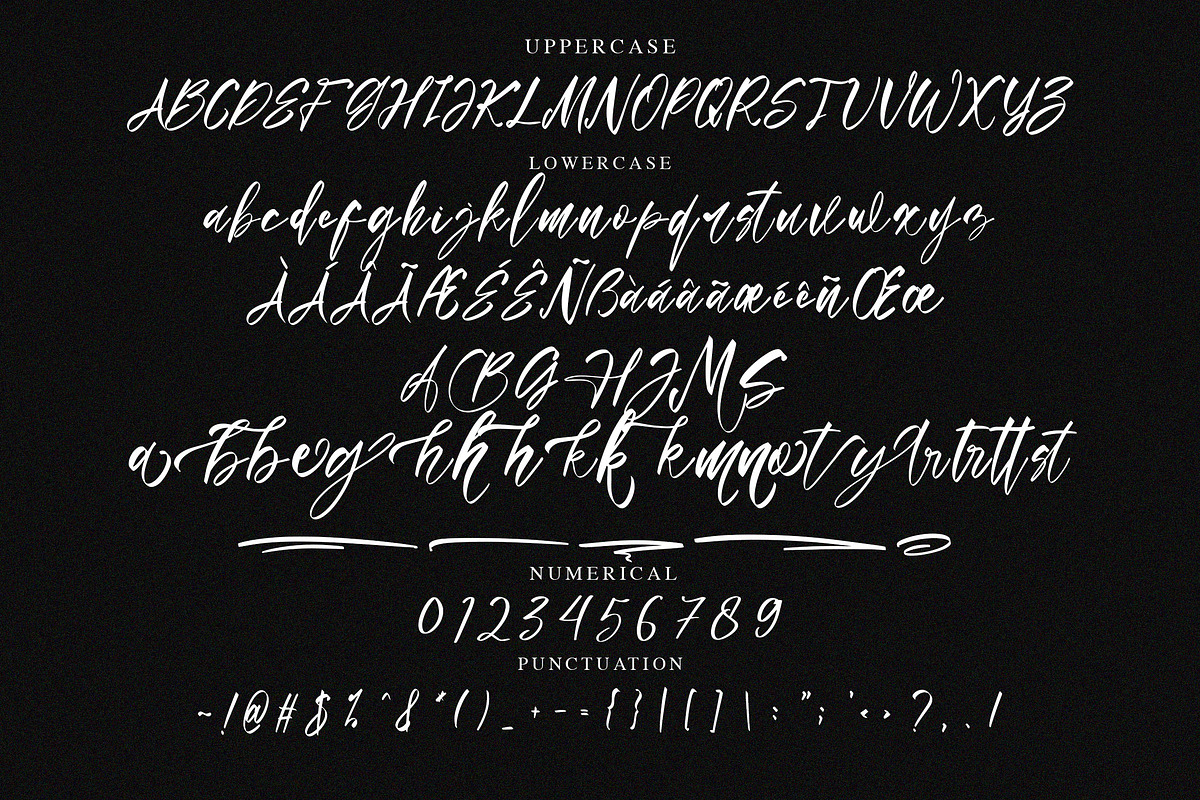 UPPERCASE
ABCDEFGHIJKLMNOPQRSTUVWXYZ
LOWERCASE
abcdefghijklmnopqrstuvwxyz
ÀÁÂÃÆÉÊÑßàáâãæéêñŒœ
ABGHJMS
abbeghhhkkkmnotylrtrttst
NUMERICAL
0123456789
PUNCTUATION
~!@#$%^&*()_+-={}|[]\:";'<>?,./